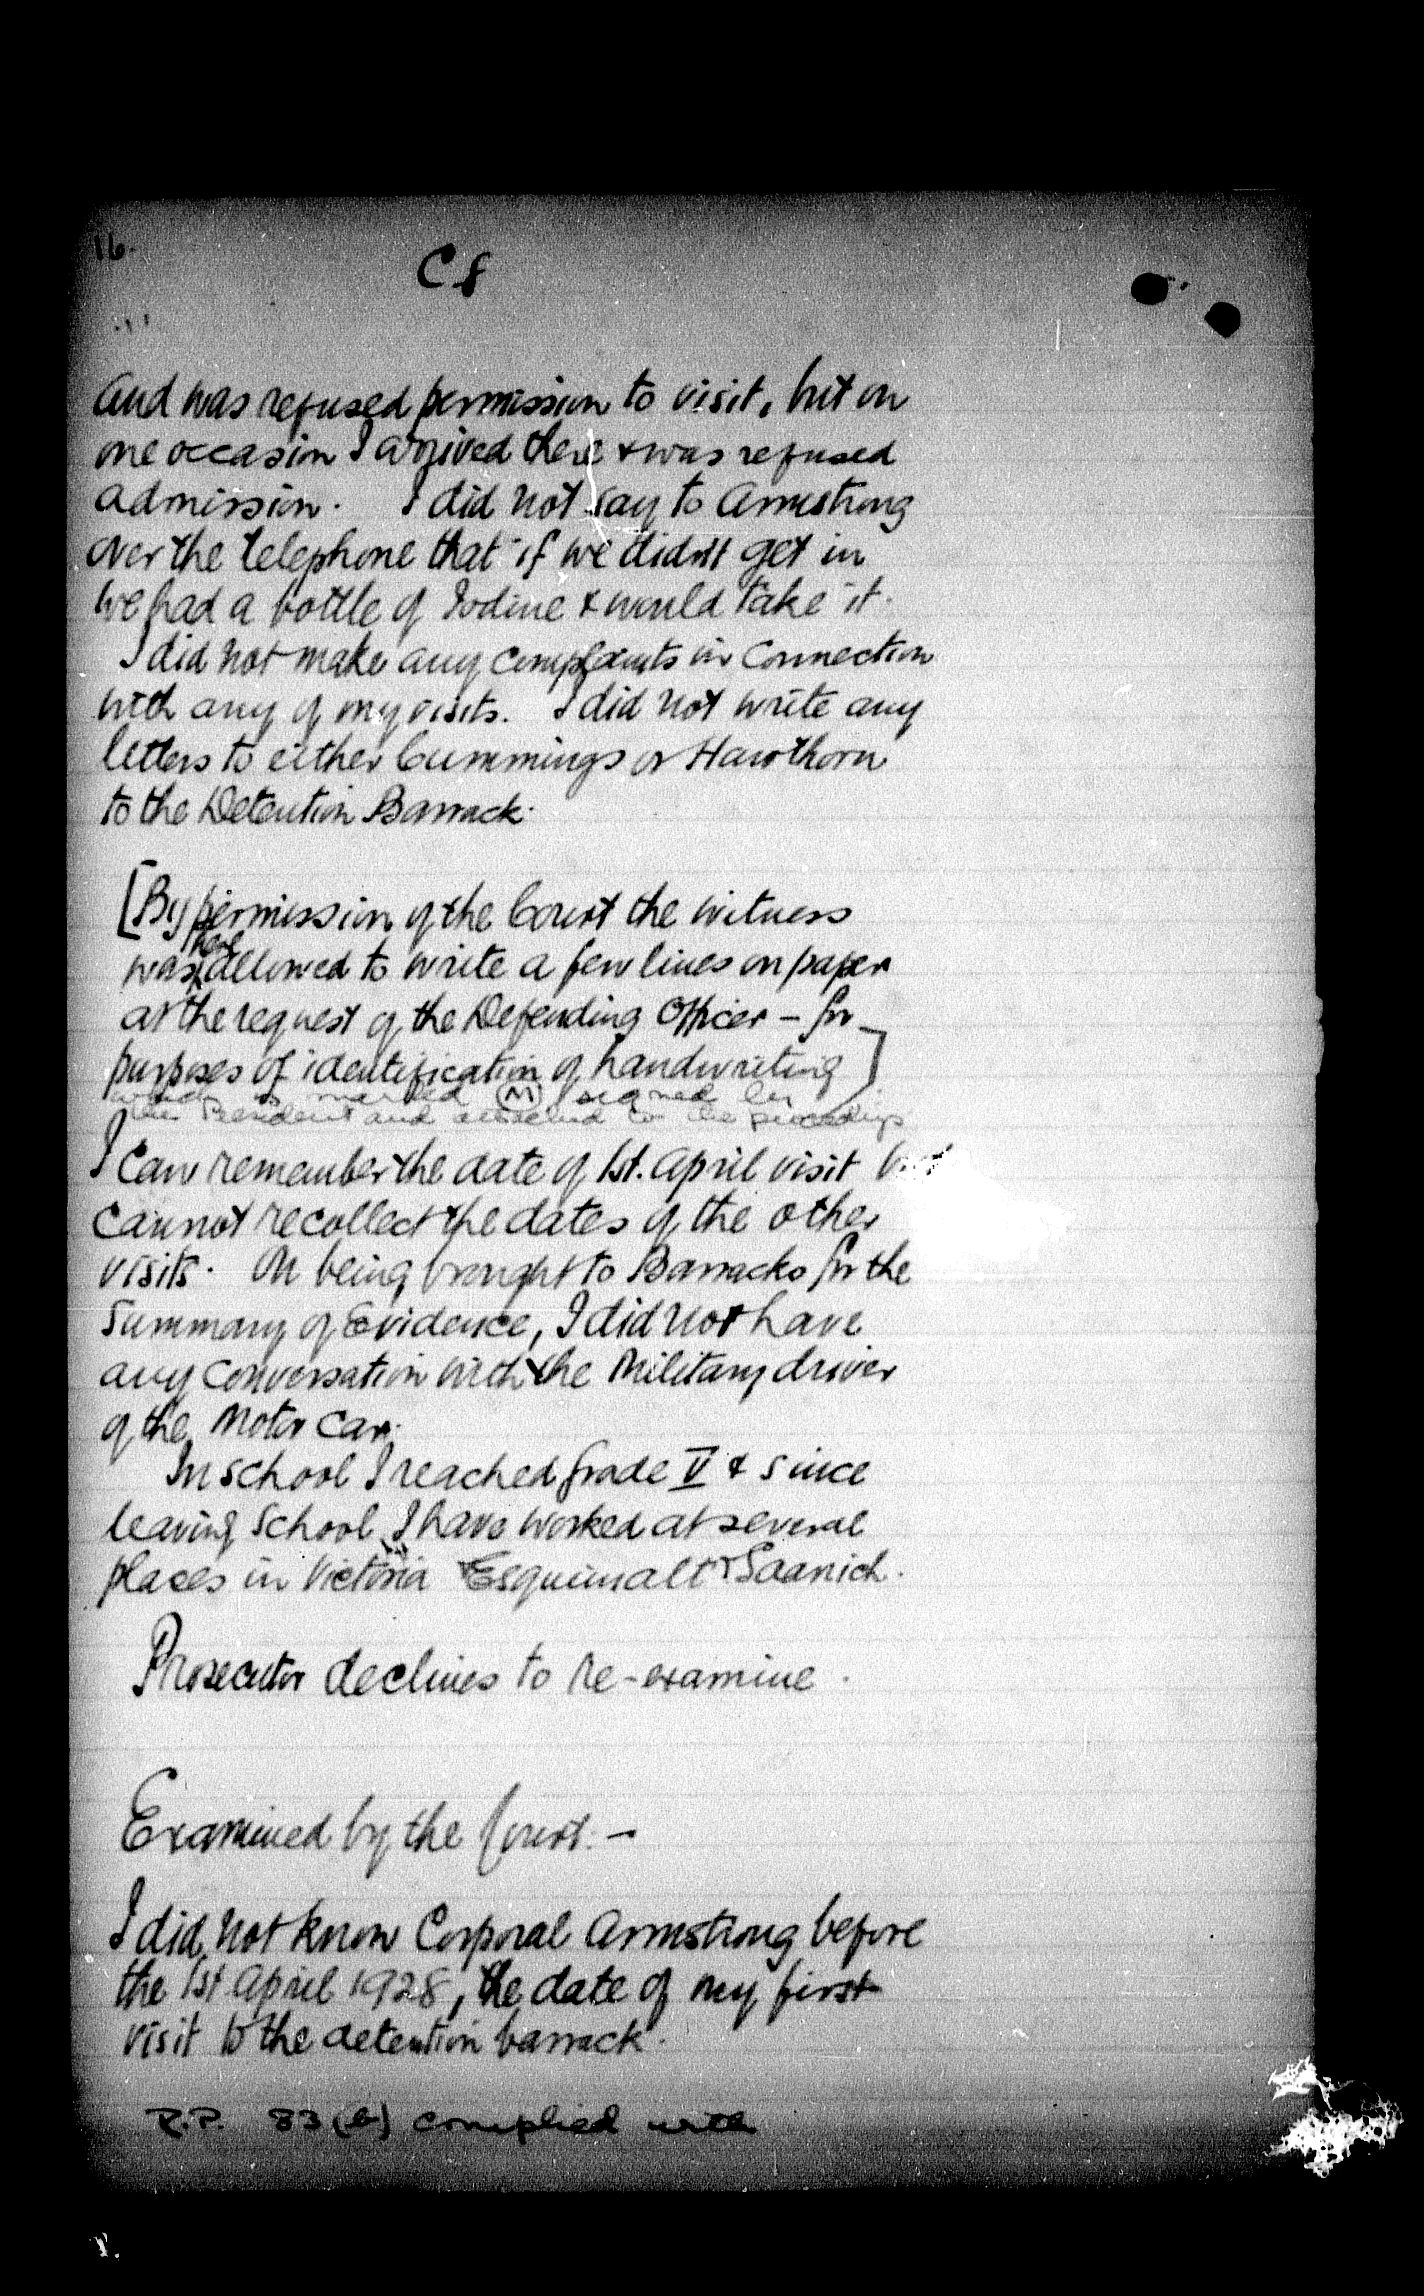 16.
C8
and was refused permission to visit, but on
one occasion I arrived there & was refused
admission. I did not say to Armstrong
over the telephone that "if we didn't get in
we had a bottle of Iodine & would take it.
I did not make any complaints in connection
with any of my visits. I did not write any
letters to either Cummings or Hawthorn
to the Detention Barrack.
[By permission of the Court the witness
here
was allowed to write a few lines on paper
at the request of the Defending Officer - for
purposes of identification of handwriting]
which is marked (M) signed by
the President and attached to the proceedings
I can remember the date of 1st. April visit but
cannot recollect the dates of the other
visits. On being brought to Barracks for the
Summary of Evidence, I did not have
any conversation with the Military driver
of the Motor Car.
In school I reached Grade V & since
leaving School, I have worked at several
places in Victoria Esquimalt & Saanich.
Prosecutor declines to re-examine.
Examined by the Court. -
I did not know Corporal Armstrong before
the 1st April 1928, the date of my first
visit to the detention barrack.
R.P. 83 (b) complied with